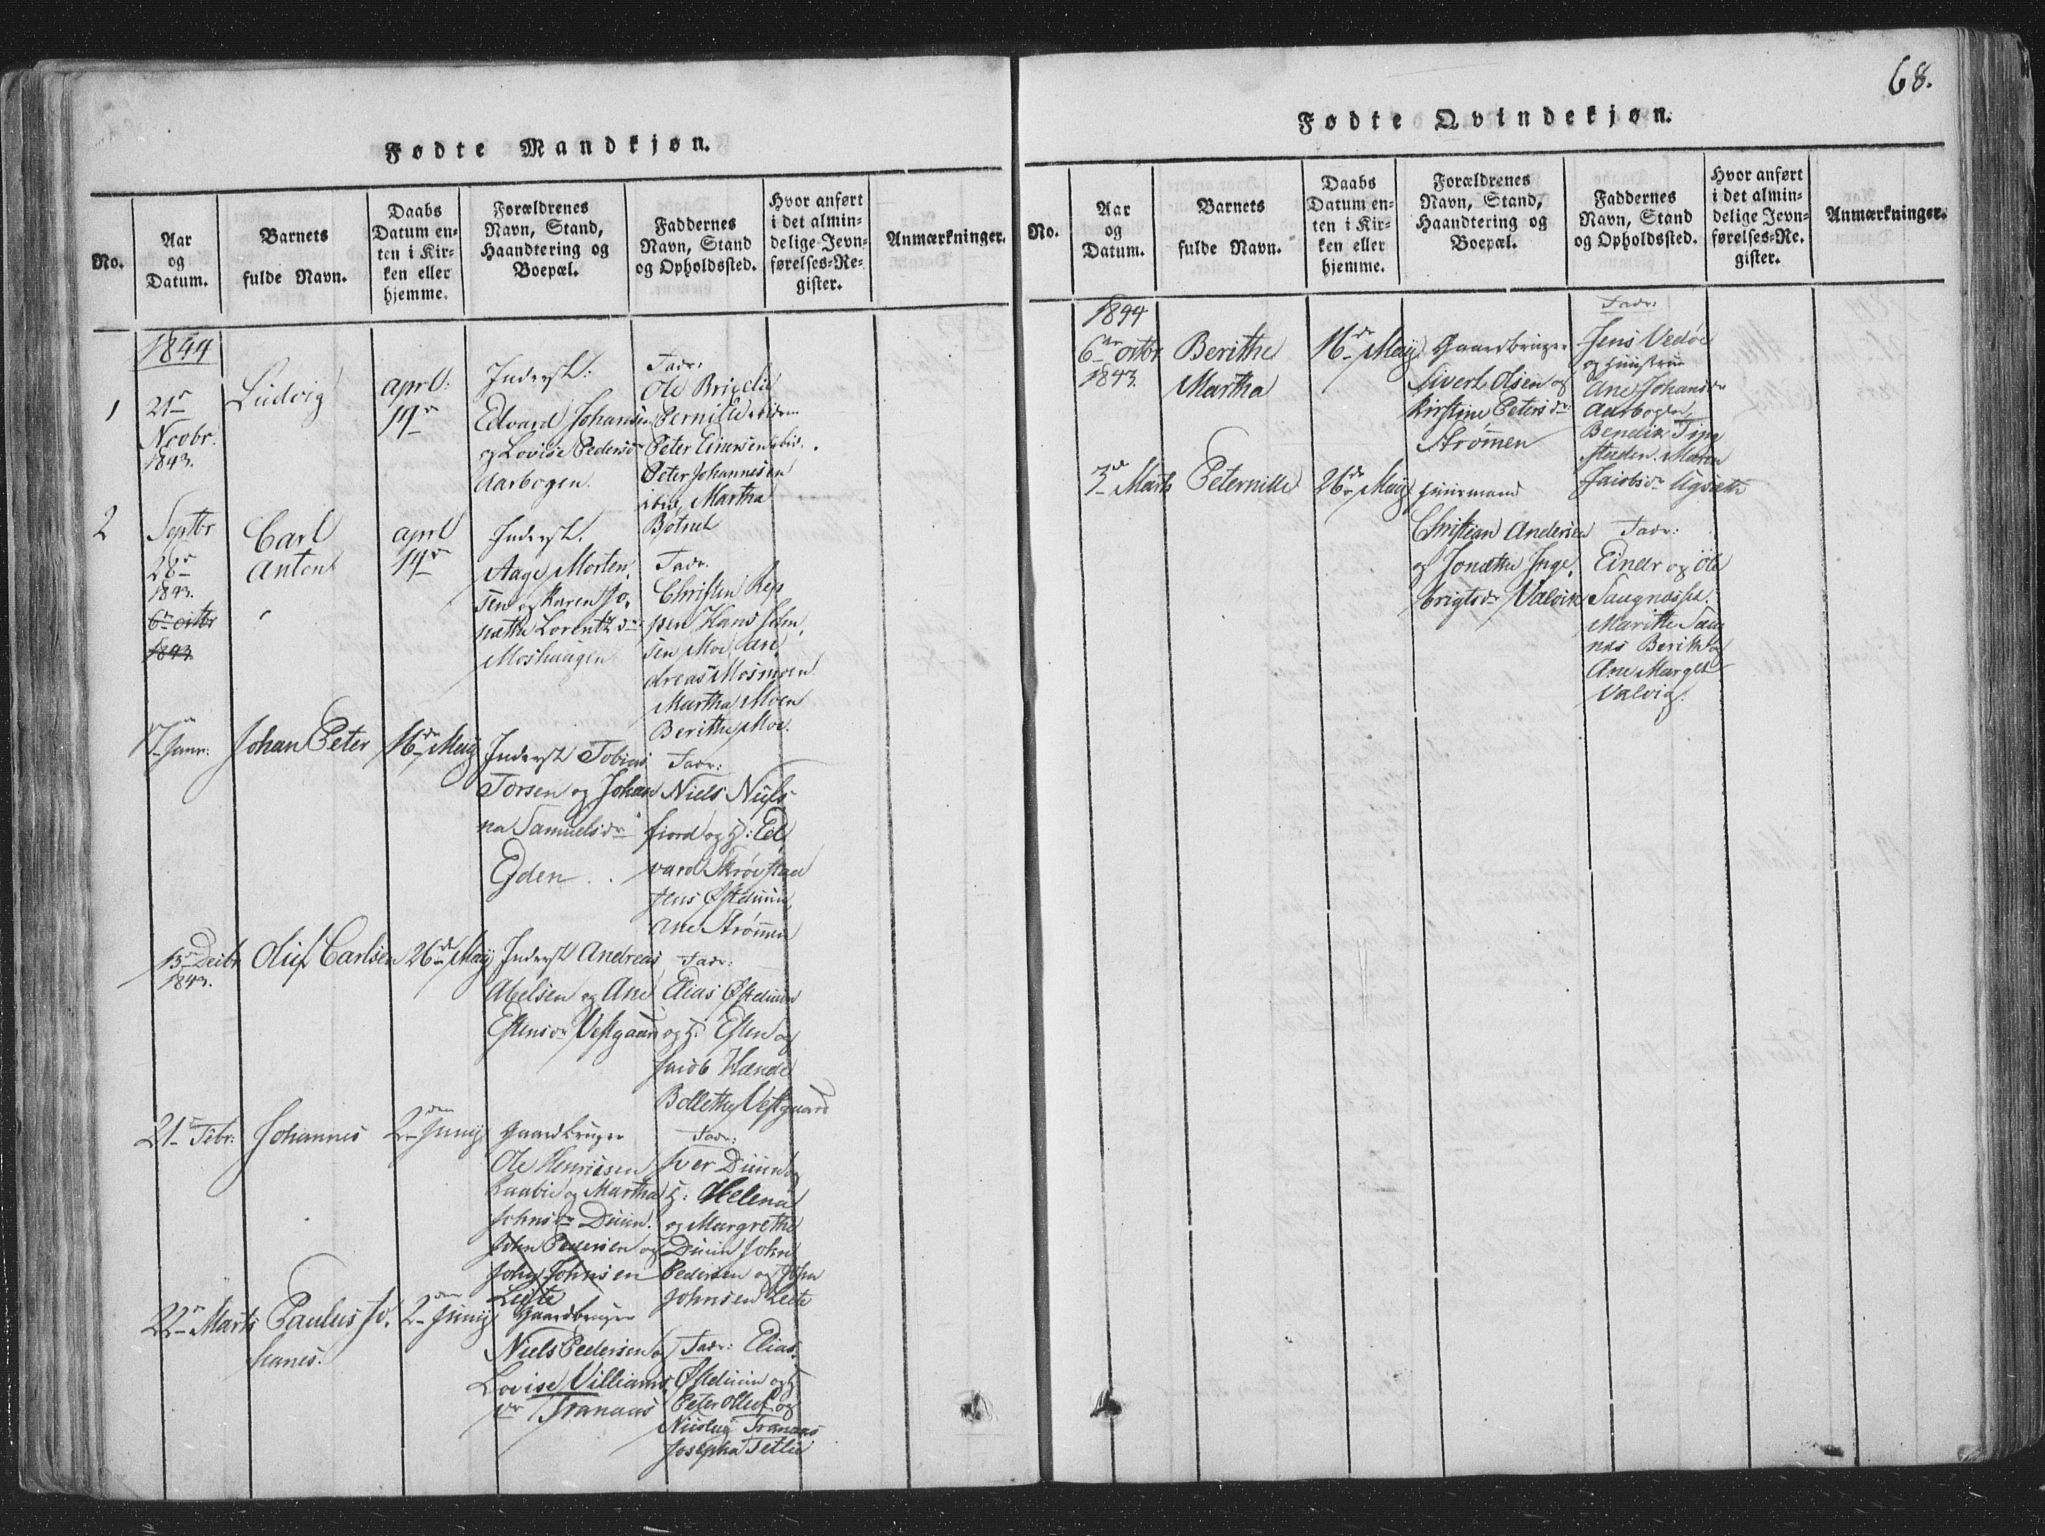 68.
Fødte Mandkjøn.
No.
Aar
og
Datum.
Barnets
fulde Navn.
Daabs
Datum en-
ten i Kir-
ken eller
hjemme.
Forældrenes
Navn, Stand,
Haandtering og
Boepæl.
Faddernes
Navn, Stand
og Opholdssted.
Hvor anført
i det almin-
delige Jevn-
førelses-Re-
gister.
Anmærkninger.
1844
1
21
Novbr.
1843.
Ludvig
aprl:
14
Inderst:
Edvard Johansen
og Lovise Pedersdr
Aarbogen.
Fadr:
Ole
Pernille ibidem
Peter Einersen ibid.
Peter Johannesen
ibid, Martha
Botnet
2
Septbr
28
1843.
6 octbr
1843
Carl
Anton
aprl
14
Inderst.
Aage Morten,
sen og Karen Jo,
nætha Lorentzdr
Moshaugen
Fadr.
Christen Jesp
sen Moe, An
dreas Mosmoen
Martha Moen
Berithe Moe.
17 Janr:
Johan Peter
16de Maij
Inderst Tobias
Torsen og Johan
na Samuelsdr
Ejden
Fadr:
Niels Niels
fiord og H: Ed,
vard Skrøvstad
Jens Østeduun,
Ane Strømmen
13 Decbr
1843.
Oluf Carlsen
26de Maij
Inderst Andreas
Abelsen og Ane
Estensdr Vestgaard
Fadr:
Elias Østeduun
og H. Esten og
Jacob Hænde
Bollethe Vestgaard
21 Febr:
Johannes
2den Junij
Gaardbruger
Ole Henricsen
og Martha
Johnsdr Duun.
John Pedersen og
John Johnsen
Leete
Fadr:
Iver Duun og
H: Helena
og Margrethe
Duun John
Pedersen og John
Johnsen Leete
22 Marts
Paulus Jo,
hanes.
2den Junij
Gaardbruger
Niels Pedersen og
Lovise Villiams
dr Tranaas
Fadr: Elias
Østeduun og H
Peter Oluf og
Tranaas
Josepha Tetlie
Fødte Qvindekjøn.
No.
Aar
og
Datum.
Barnets
fulde Navn.
Daabs
Datum en-
ten i Kir-
ken eller
hjemme.
Forældrenes
Navn, Stand,
Haandtering og
Boepæl.
Faddernes
Navn, Stand
og Opholdssted.
Hvor anført
i det almin-
delige Jevn-
førelses-Re-
gister.
Anmærkninger.
1844
6 octbr
1843.
Berithe
Martha
16de Maij
Gaardbruger
Sivert Olsen og
Kirstine Petersdr
Strømmen
Fadr:
Jens Vedøe
og huustrue
Ane Johansdr
Aarbogen,
Bendix Ting
studen. Maren
Jacobsdr
3 Marts
Peternille
26de Maij
Huusmand
Christian Andersen
og Jonætha Inge,
brigtsdr Valvik
Fadr:
Einer og Ole
Marithe Saug
nes Berith og
Ane Margrt
Valvig.